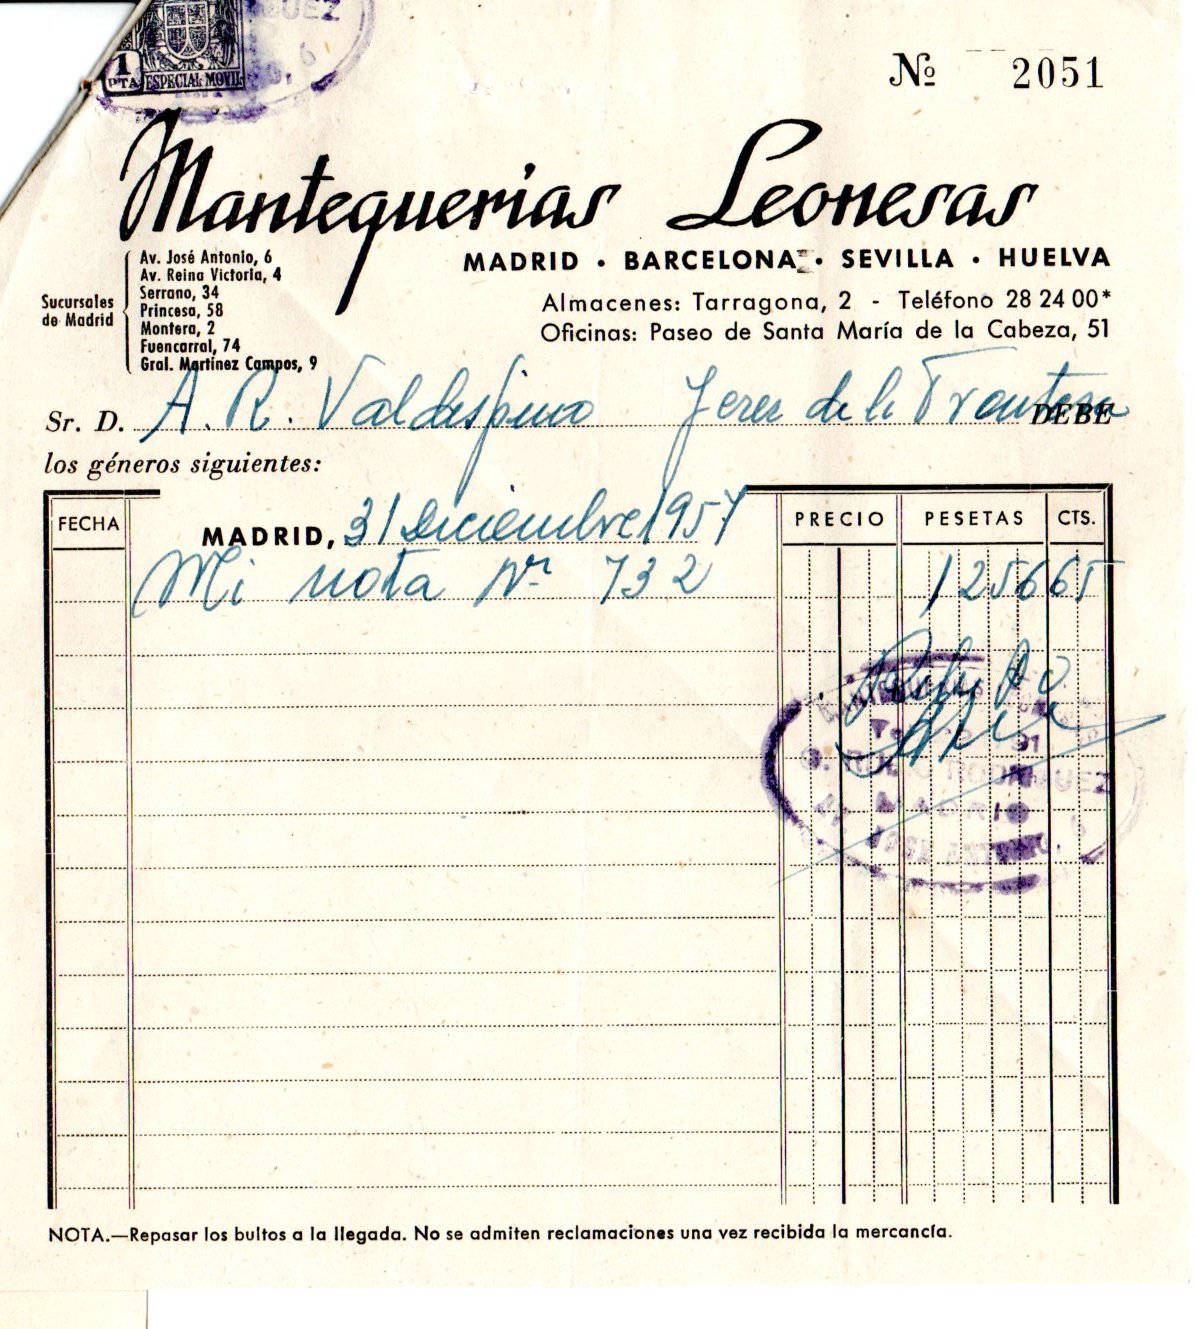 QUEZ
6
1
PTA
ESPECIAL MOVIL
Nº 2051
Mantequerias Leonesas
MADRID · BARCELONA · SEVILLA · HUELVA
Almacenes: Tarragona, 2 - Teléfono 28 24 00*
Oficinas: Paseo de Santa María de la Cabeza, 51
Sucursales
de Madrid
Av. José Antonio, 6
Av. Reina Victoria, 4
Serrano, 34
Princesa, 58
Montera, 2
Fuencarral, 74
Gral. Martínez Campos, 9
Sr. D. A. R. Valdespino Jerez de la Frontera DEBE
los géneros siguientes:
FECHA PRECIO PESETAS CTS.
MADRID, 31 Diciembre 1957
Mi nota Nº 732 1256 65
MADRID
NOTA.—Repasar los bultos a la llegada. No se admiten reclamaciones una vez recibida la mercancía.